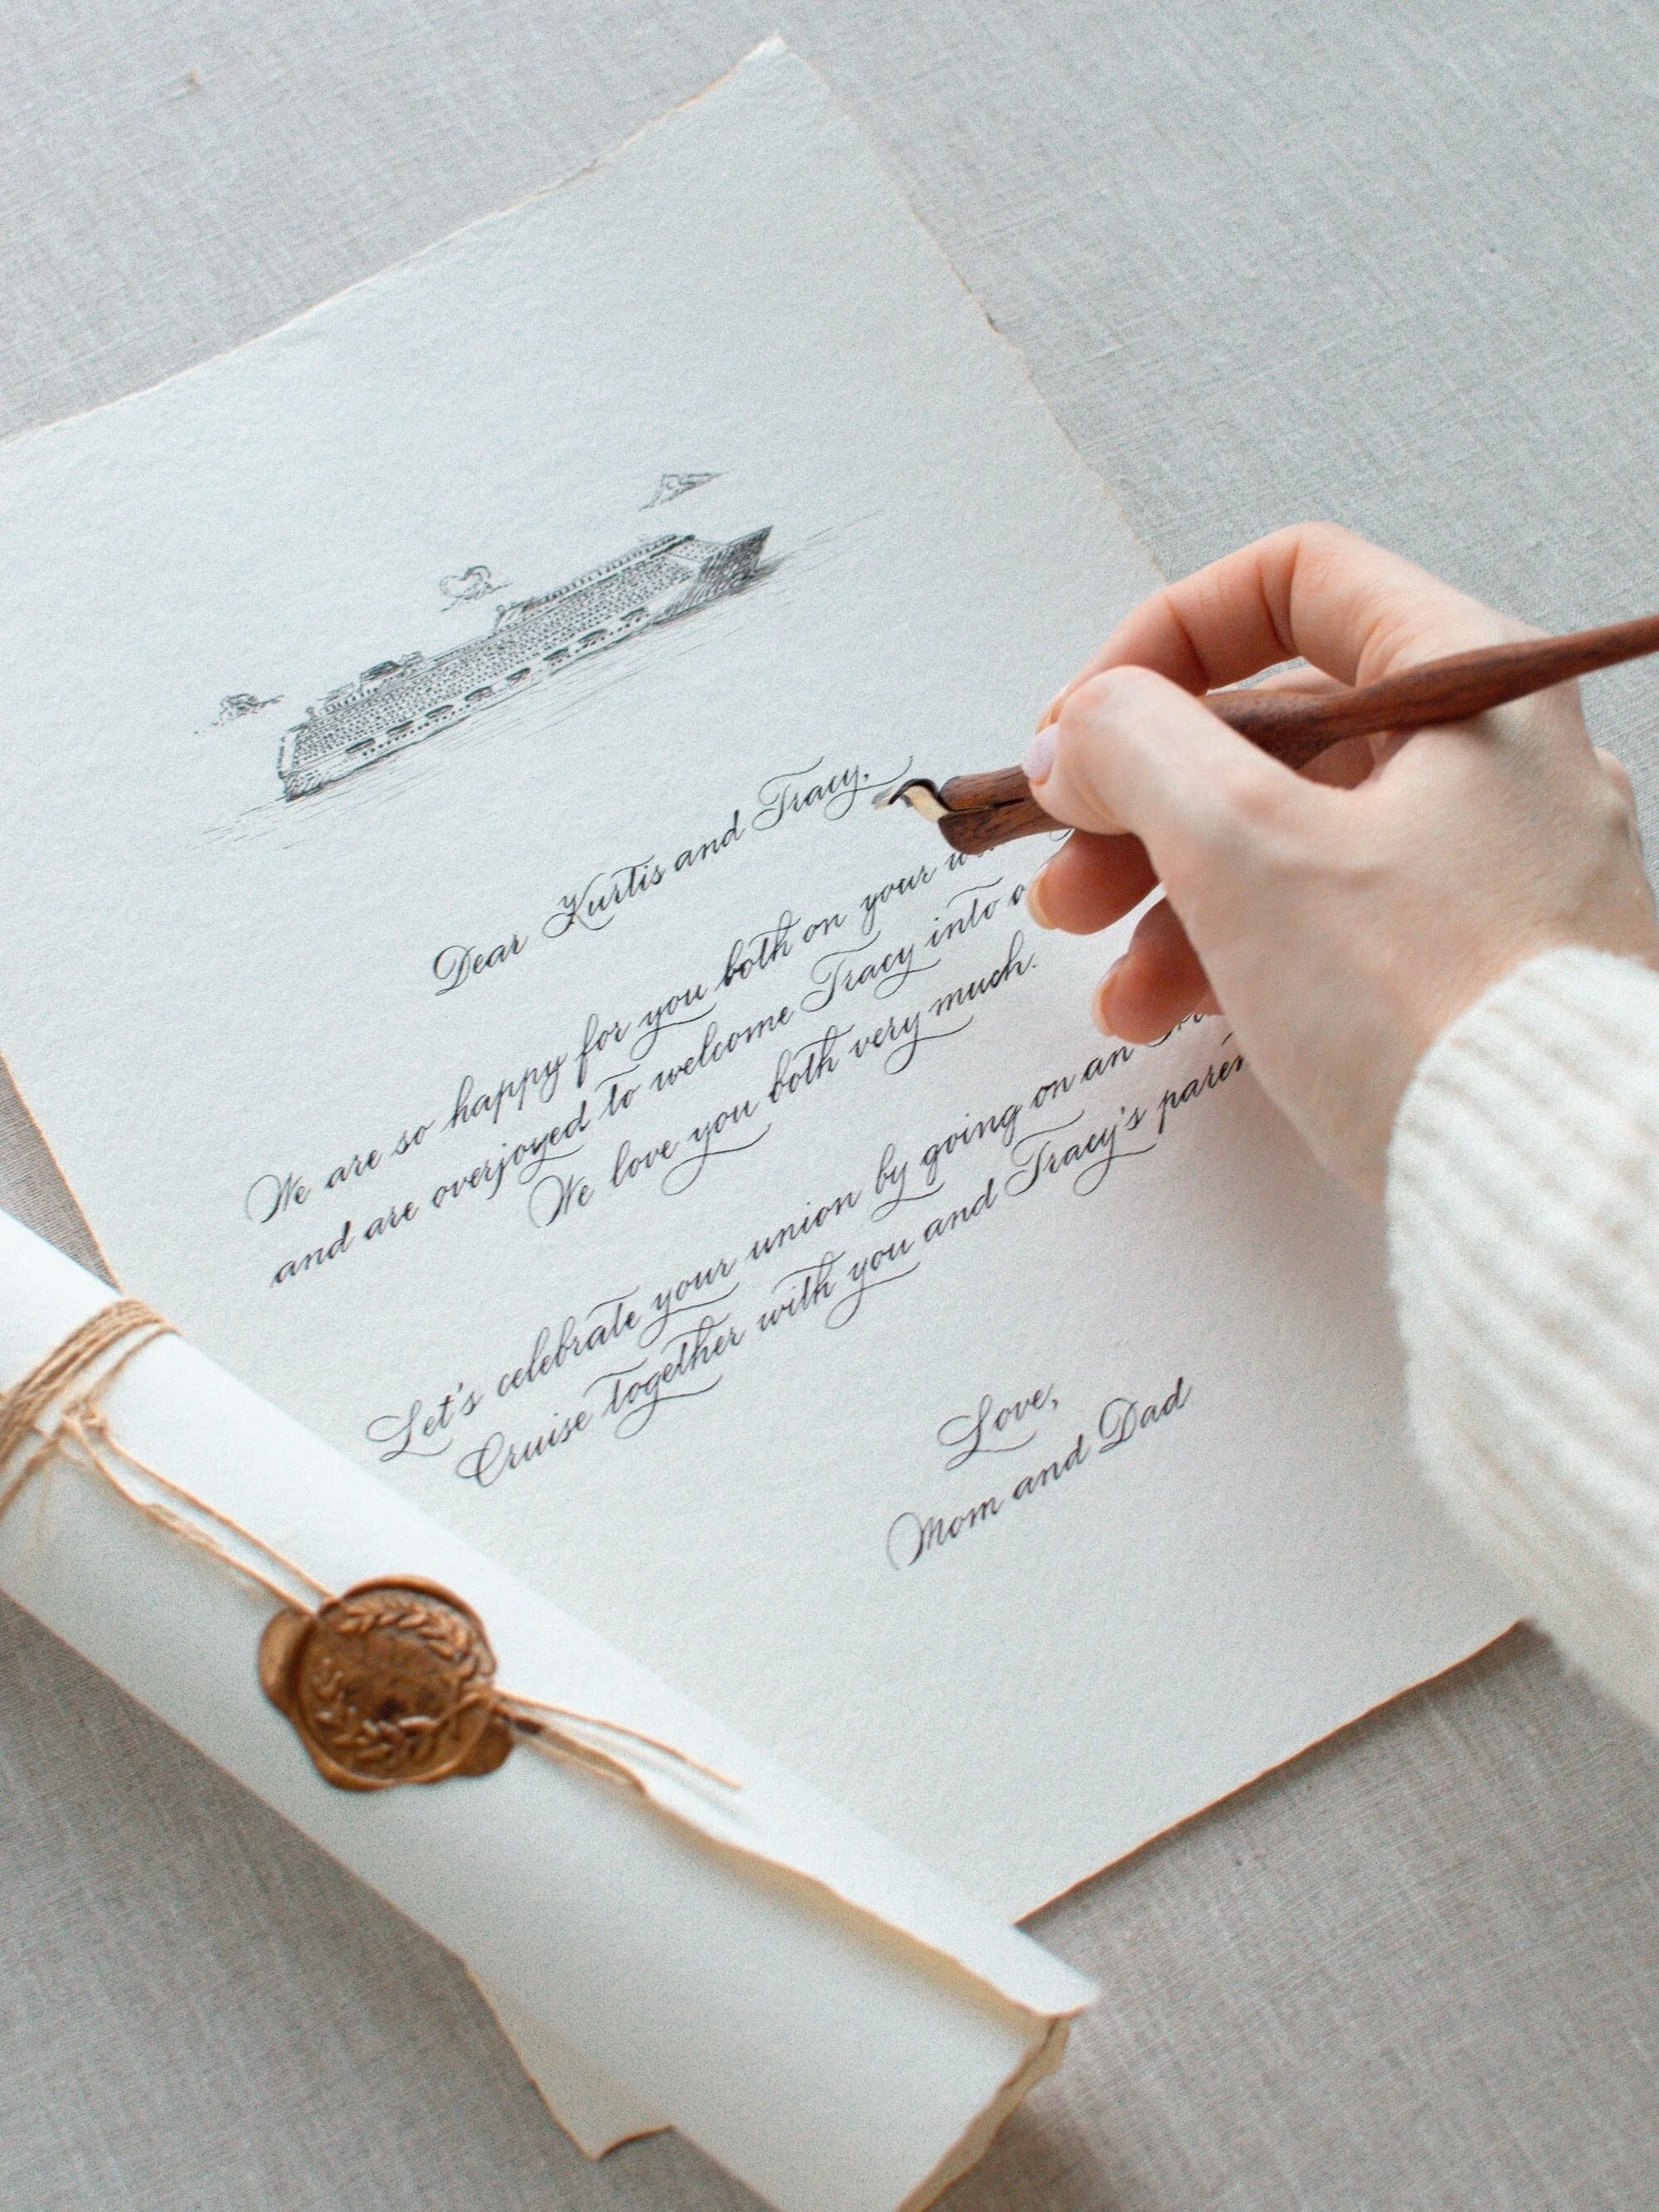 Dear Kurtis and Tracy,
We are so happy for you both on your
and are overjoyed to welcome Tracy into
We love you both very much.
Let's celebrate your union by going on an
Cruise together with you and Tracy's
Love,
Mom and Dad